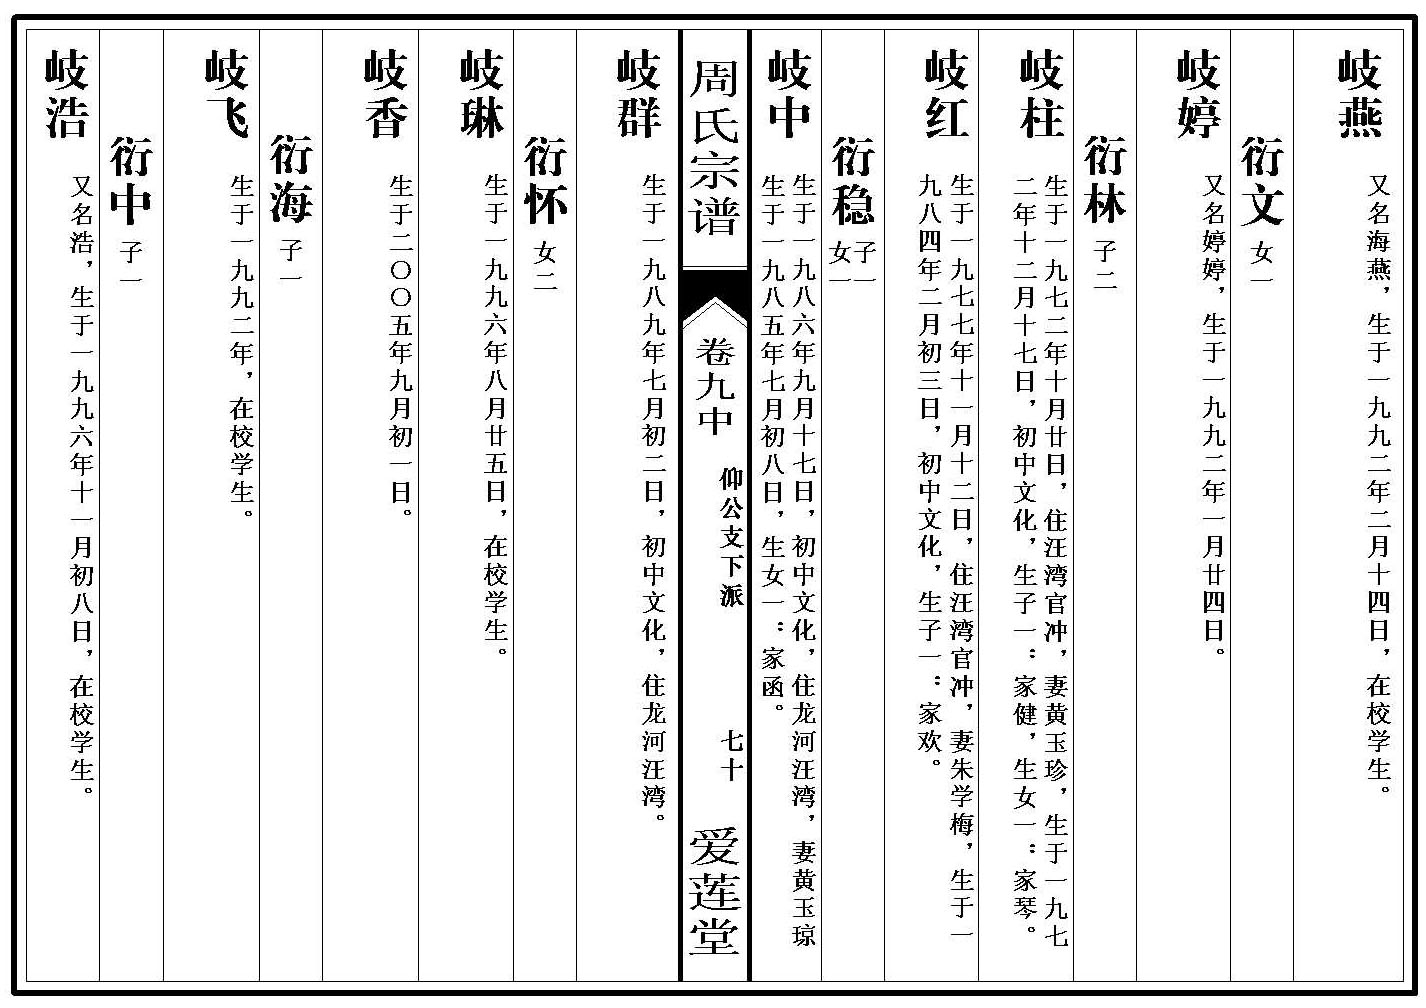 岐燕
又名海燕，生于一九九二年二月十四日，在校学生。
衍文 女一
岐婷
又名婷婷，生于一九九二年一月廿四日。
衍林 子二
岐柱
生于一九七二年十月廿日，住汪湾官冲，妻黄玉珍，生于一九七
二年十二月十七日，初中文化，生子一：家健，生女一：家琴。
岐红
生于一九七七年十一月十二日，住汪湾官冲，妻朱学梅，生于一
九八四年二月初三日，初中文化，生子一：家欢。
衍稳 子一
女一
岐中
生于一九八六年九月十七日，初中文化，住龙河汪湾，妻黄玉琼
生于一九八五年七月初八日，生女一：家函。
周氏宗谱
卷九中
仰公支下派
七十
爱莲堂
岐群
生于一九八九年七月初二日，初中文化，住龙河汪湾。
衍怀 女二
岐琳
生于一九九六年八月廿五日，在校学生。
岐香
生于二〇〇五年九月初一日。
衍海 子一
岐飞
生于一九九二年，在校学生。
衍中 子一
岐浩
又名浩，生于一九九六年十一月初八日，在校学生。